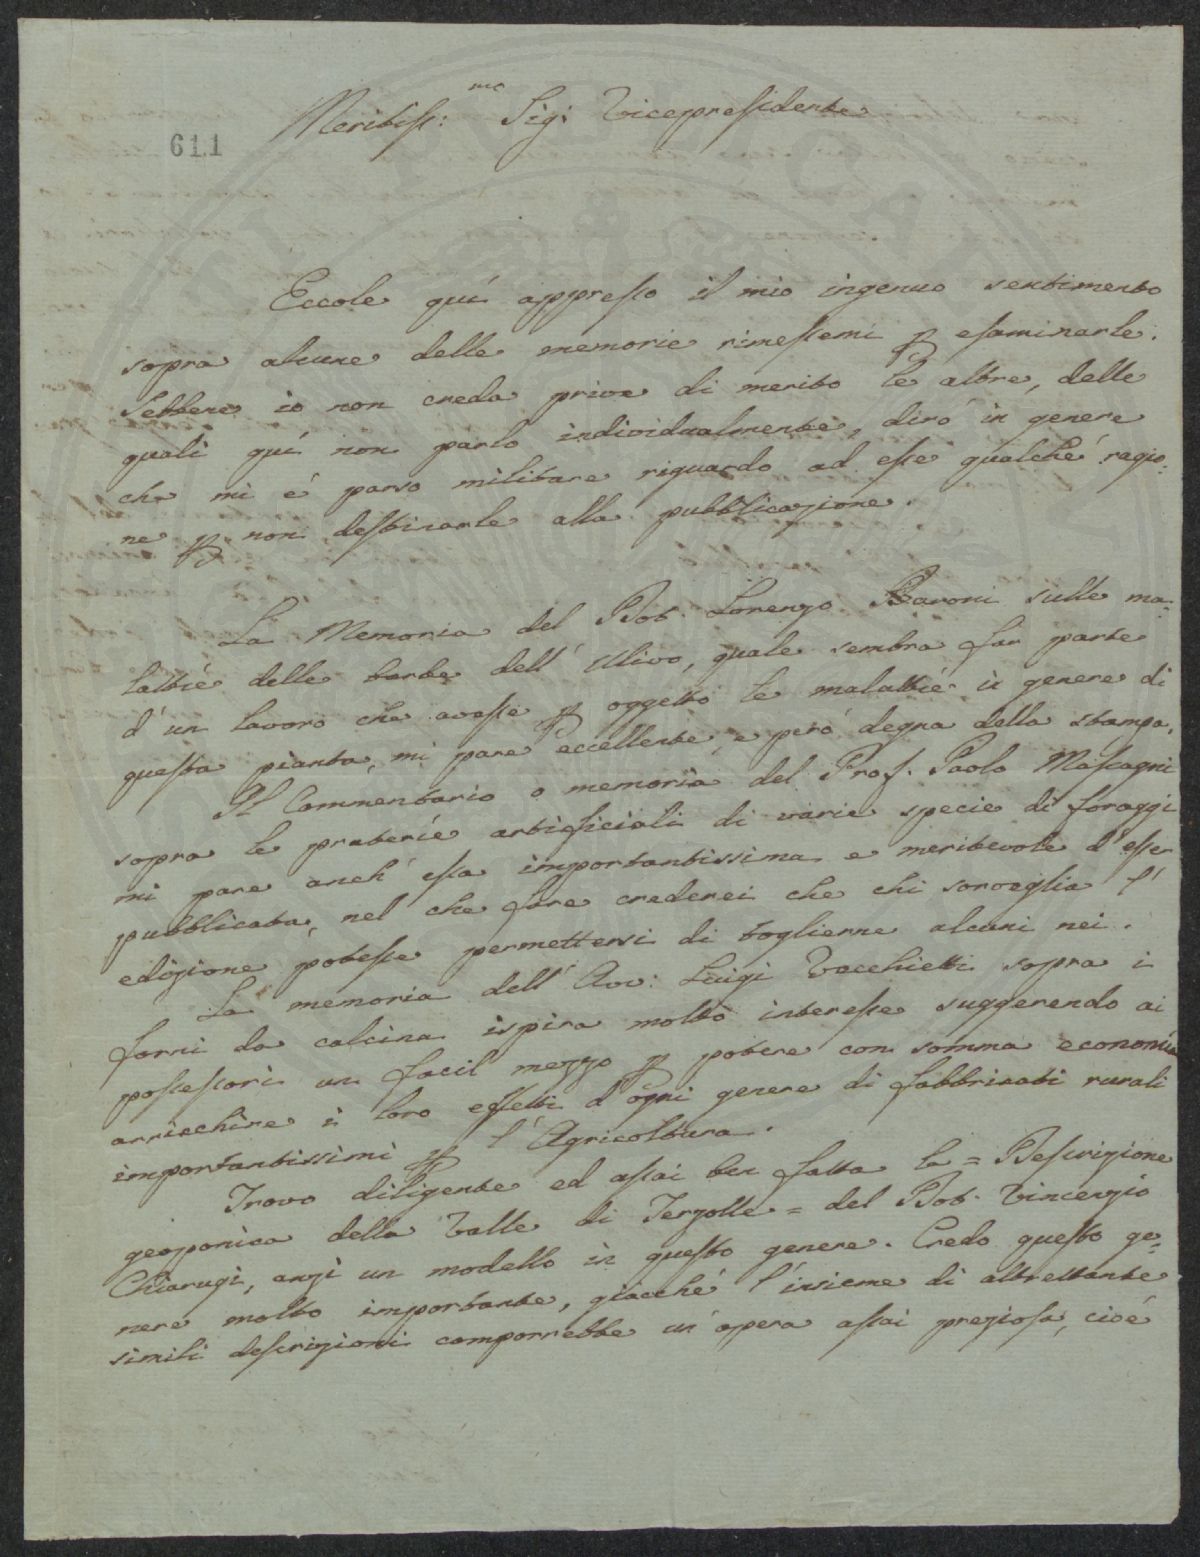 611
Meritiss:mo Sig: Vicepresidente
Eccole quí appresso il mio ingenuo sentimento
sopra alcune delle memorie rimessemi p esaminarle.
Sebbene io non creda prive di merito le altre, delle
quali quí non parlo individualmente, diró in genere
che mi é parso militare riguardo ad esse qualche ragio:
ne p non destinarle alla pubblicazione.
La Memoria del Dot. Lorenzo Baroni sulle ma:
lattíe delle barbe dell' Ulivo, quale sembra far parte
d' un lavoro che avesse p oggetto le malattíe in genere di
questa pianta, mi pare eccellente, e peró degna della stampa.
Il Commentario o memoria del Prof. Paolo Mascagni
sopra le prateríe artificiali di varie specie di foraggi
mi pare anch' essa importantissima e meritevole d' esser
pubblicata, nel che fare crederei che chi sorveglia l'
edizione potesse permettersi di toglierne alcuni nei.
La memoria dell' Avv: Luigi Tacchietti sopra i
forni da calcina ispira molto interesse suggerendo ai
possessori un facil mezzo p potere con somma economía
arricchire i loro effetti d' ogni genere di fabbricati rurali
importantissimi p l' Agricoltura.
Trovo diligente ed assai ben fatta la = Descrizione
geoponica della Valle di Terzolle = del Dot. Vincenzio
Chiarugi, anzi un modello in questo genere. Credo questo ge=
nere molto importante, giacché l' insieme di altrettante
simili descrizioni comporrebbe un' opera assai preziosa, cioé